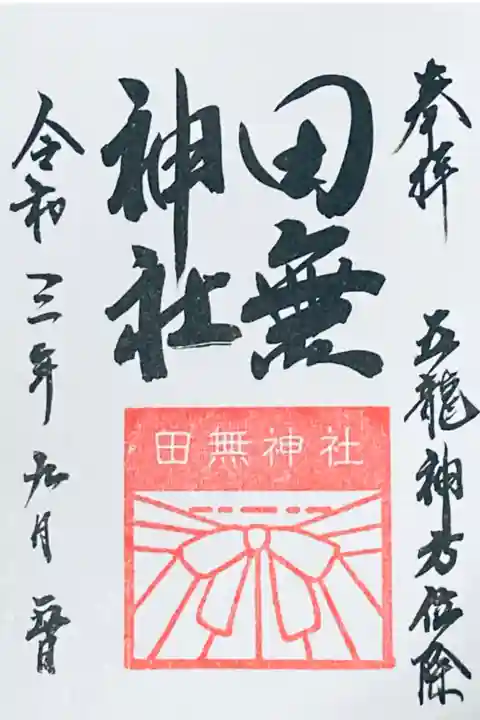 奉拝 五龍神方位除
田無
神社
令和三年九月
田無神社